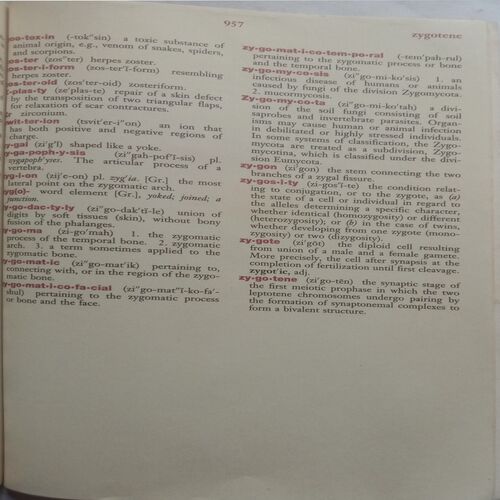 957
zygotene
oo-tox-in (-tok″sin) a toxic substance of
animal origin, e.g., venom of snakes, spiders,
and scorpions.
os-ter (zos″ter) herpes zoster.
os-ter-i-form (zos-ter′ĭ-form) resembling
herpes zoster.
os-ter-oid (zos′ter-oid) zosteriform.
-plas-ty (ze′plas-te) repair of a skin defect
by the transposition of two triangular flaps,
for relaxation of scar contractures.
r zirconium.
wit-ter-ion (tsvit′er-i″on) an ion that
has both positive and negative regions of
charge.
y-gal (zi′g'l) shaped like a yoke.
y-ga-poph-y-sis (zi″gah-pof′ĭ-sis) pl.
zygapoph′yses. The articular process of a
vertebra.
yg-i-on (zij′e-on) pl. zyg′ia. [Gr.] the most
lateral point on the zygomatic arch.
yg(o)- word element [Gr.], yoked; joined; a
junction.
y-go-dac-ty-ly (zi″go-dak′tĭ-le) union of
digits by soft tissues (skin), without bony
fusion of the phalanges.
y-go-ma (zi-go′mah) 1. the zygomatic
process of the temporal bone. 2. zygomatic
arch. 3. a term sometimes applied to the
zygomatic bone.
y-go-mat-ic (zi″go-mat′ik) pertaining to,
connecting with, or in the region of the zygo-
matic bone.
y-go-mat-i-co-fa-cial (zi″go-mat″ĭ-ko-fa′-
shul) pertaining to the zygomatic process
or bone and the face.
zy-go-mat-i-co-tem-po-ral (-tem′pah-rul)
pertaining to the zygomatic process or bone
and the temporal bone.
zy-go-my-co-sis (zi″go-mi-ko′sis) 1. an
infectious disease of humans or animals
caused by fungi of the division Zygomycota.
2. mucormycosis.
Zy-go-my-co-ta (zi″go-mi-ko′tah) a divi-
sion of the soil fungi consisting of soil
saprobes and invertebrate parasites. Organ-
isms may cause human or animal infection
in debilitated or highly stressed individuals.
In some systems of classification, the Zygo-
mycota are treated as a subdivision, Zygo-
mycotina, which is classified under the divi-
sion Eumycota.
zy-gon (zi′gon) the stem connecting the two
branches of a zygal fissure.
zy-gos-i-ty (zi-gos′ĭ-te) the condition relat-
ing to conjugation, or to the zygote, as (a)
the state of a cell or individual in regard to
the alleles determining a specific character,
whether identical (homozygosity) or different
(heterozygosity); or (b) in the case of twins,
whether developing from one zygote (mono-
zygosity) or two (dizygosity).
zy-gote (zi′gōt) the diploid cell resulting
from union of a male and a female gamete.
More precisely, the cell after synapsis at the
completion of fertilization until first cleavage.
zygot′ic, adj.
zy-go-tene (zi′go-tēn) the synaptic stage of
the first meiotic prophase in which the two
leptotene chromosomes undergo pairing by
the formation of synaptonemal complexes to
form a bivalent structure.